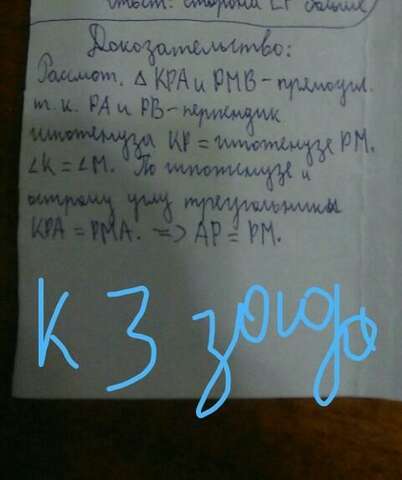 сторона EF больше
Докозательство:
Рассмот. Δ KPA и PMB - прямоуг.
т.к. PA и PB - перпендик
гипотенуза KP = гипотенузе PM.
∠K = ∠M. По гипотенузе и
острому углу треугольники
KPA = PMA. => AP = PM.
К 3 задаче